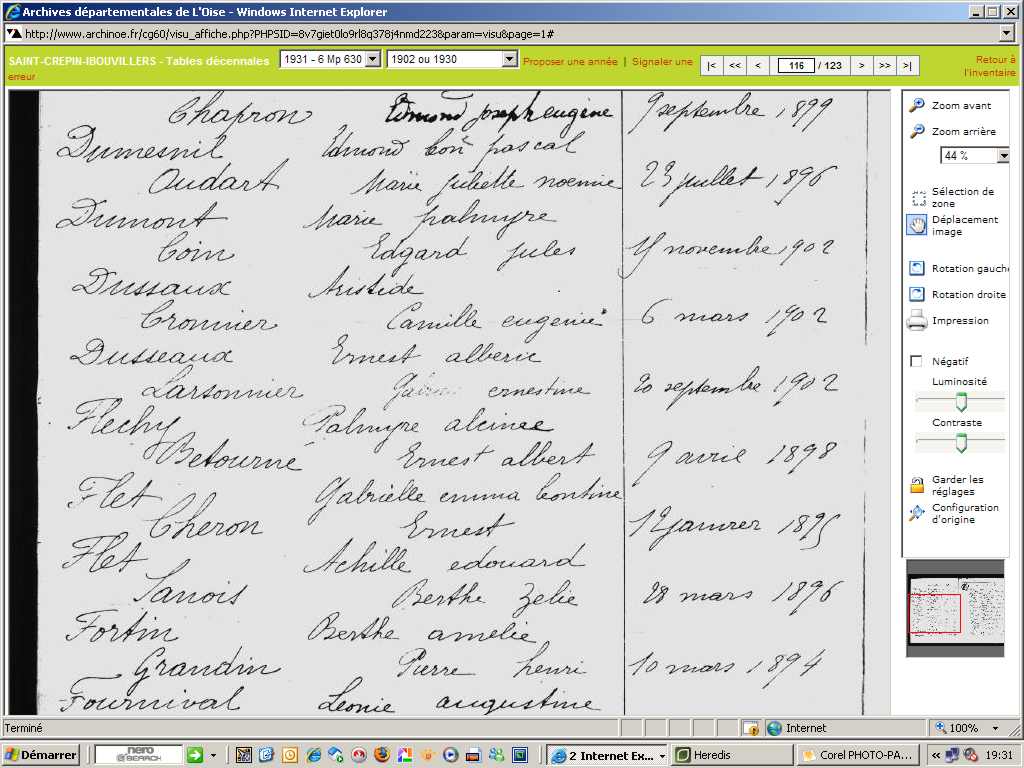 Archives départementales de L'Oise - Windows Internet Explorer
http://www.archinoe.fr/cg60/visu_affiche.php?PHPSID=8v7giet0lo9rl8q378j4nmd223&param=visu&page=1#
SAINT-CREPIN-IBOUVILLERS - Tables décennales 1931 - 6 Mp 630 1902 ou 1930 Proposer une année | Signaler une erreur
|< << < 116 / 123 > >> >|
Retour à
l'inventaire
Chapron Edmond joseph eugène 9 septembre 1899
Dumesnil Edmond Léon pascal
Oudart Marie Juliette noemie 23 juillet 1896
Dumont Marie palmyre
Coin Edgard jules 15 novembre 1902
Dussaux Aristide
Cronnier Camille eugenie 6 mars 1902
Dusseaux Ernest alberic
Larsonnier ernestine 20 septembre 1902
Flechy Palmyre alcinee
Betourne Ernest albert 9 avril 1898
Flet Gabrielle emma Leontine
Cheron Ernest 12 janvier 1895
Flet Achille edouard
Sanois Berthe Zelie 28 mars 1896
Fortin Berthe amelie
Grandin Pierre henri 10 mars 1894
Fournival Leonie augustine
Zoom avant
Zoom arrière
44 %
Sélection de
zone
Déplacement
image
Rotation gauche
Rotation droite
Impression
Négatif
Luminosité
Contraste
Garder les
réglages
Configuration
d'origine
Terminé Internet 100%
Démarrer nero SEARCH 2 Internet Ex... Heredis Corel PHOTO-PA... 19:31